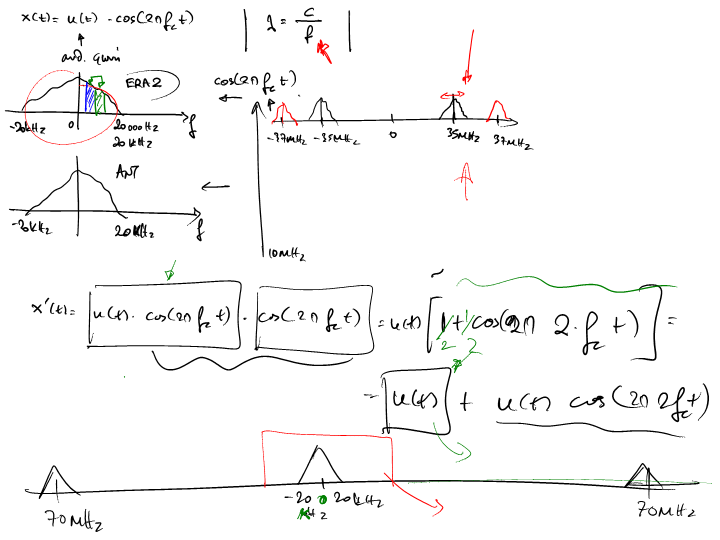 x(t) = u(t) · cos(2π f_c t)
λ = c / f
ERA2
cos(2π f_c t)
-20kHz 0 20000Hz f
20kHz
-37MHz -35MHz 0 35MHz 37MHz
ANT
-20kHz 20kHz f
10MHz
x'(t) = u(t) · cos(2π f_c t) · cos(2π f_c t) = u(t) [ 1/2 + 1/2 cos(2π 2 · f_c t) ] =
= u(t) + u(t) cos(2π 2f_c t)
70MHz -20 0 20kHz 70MHz
kHz